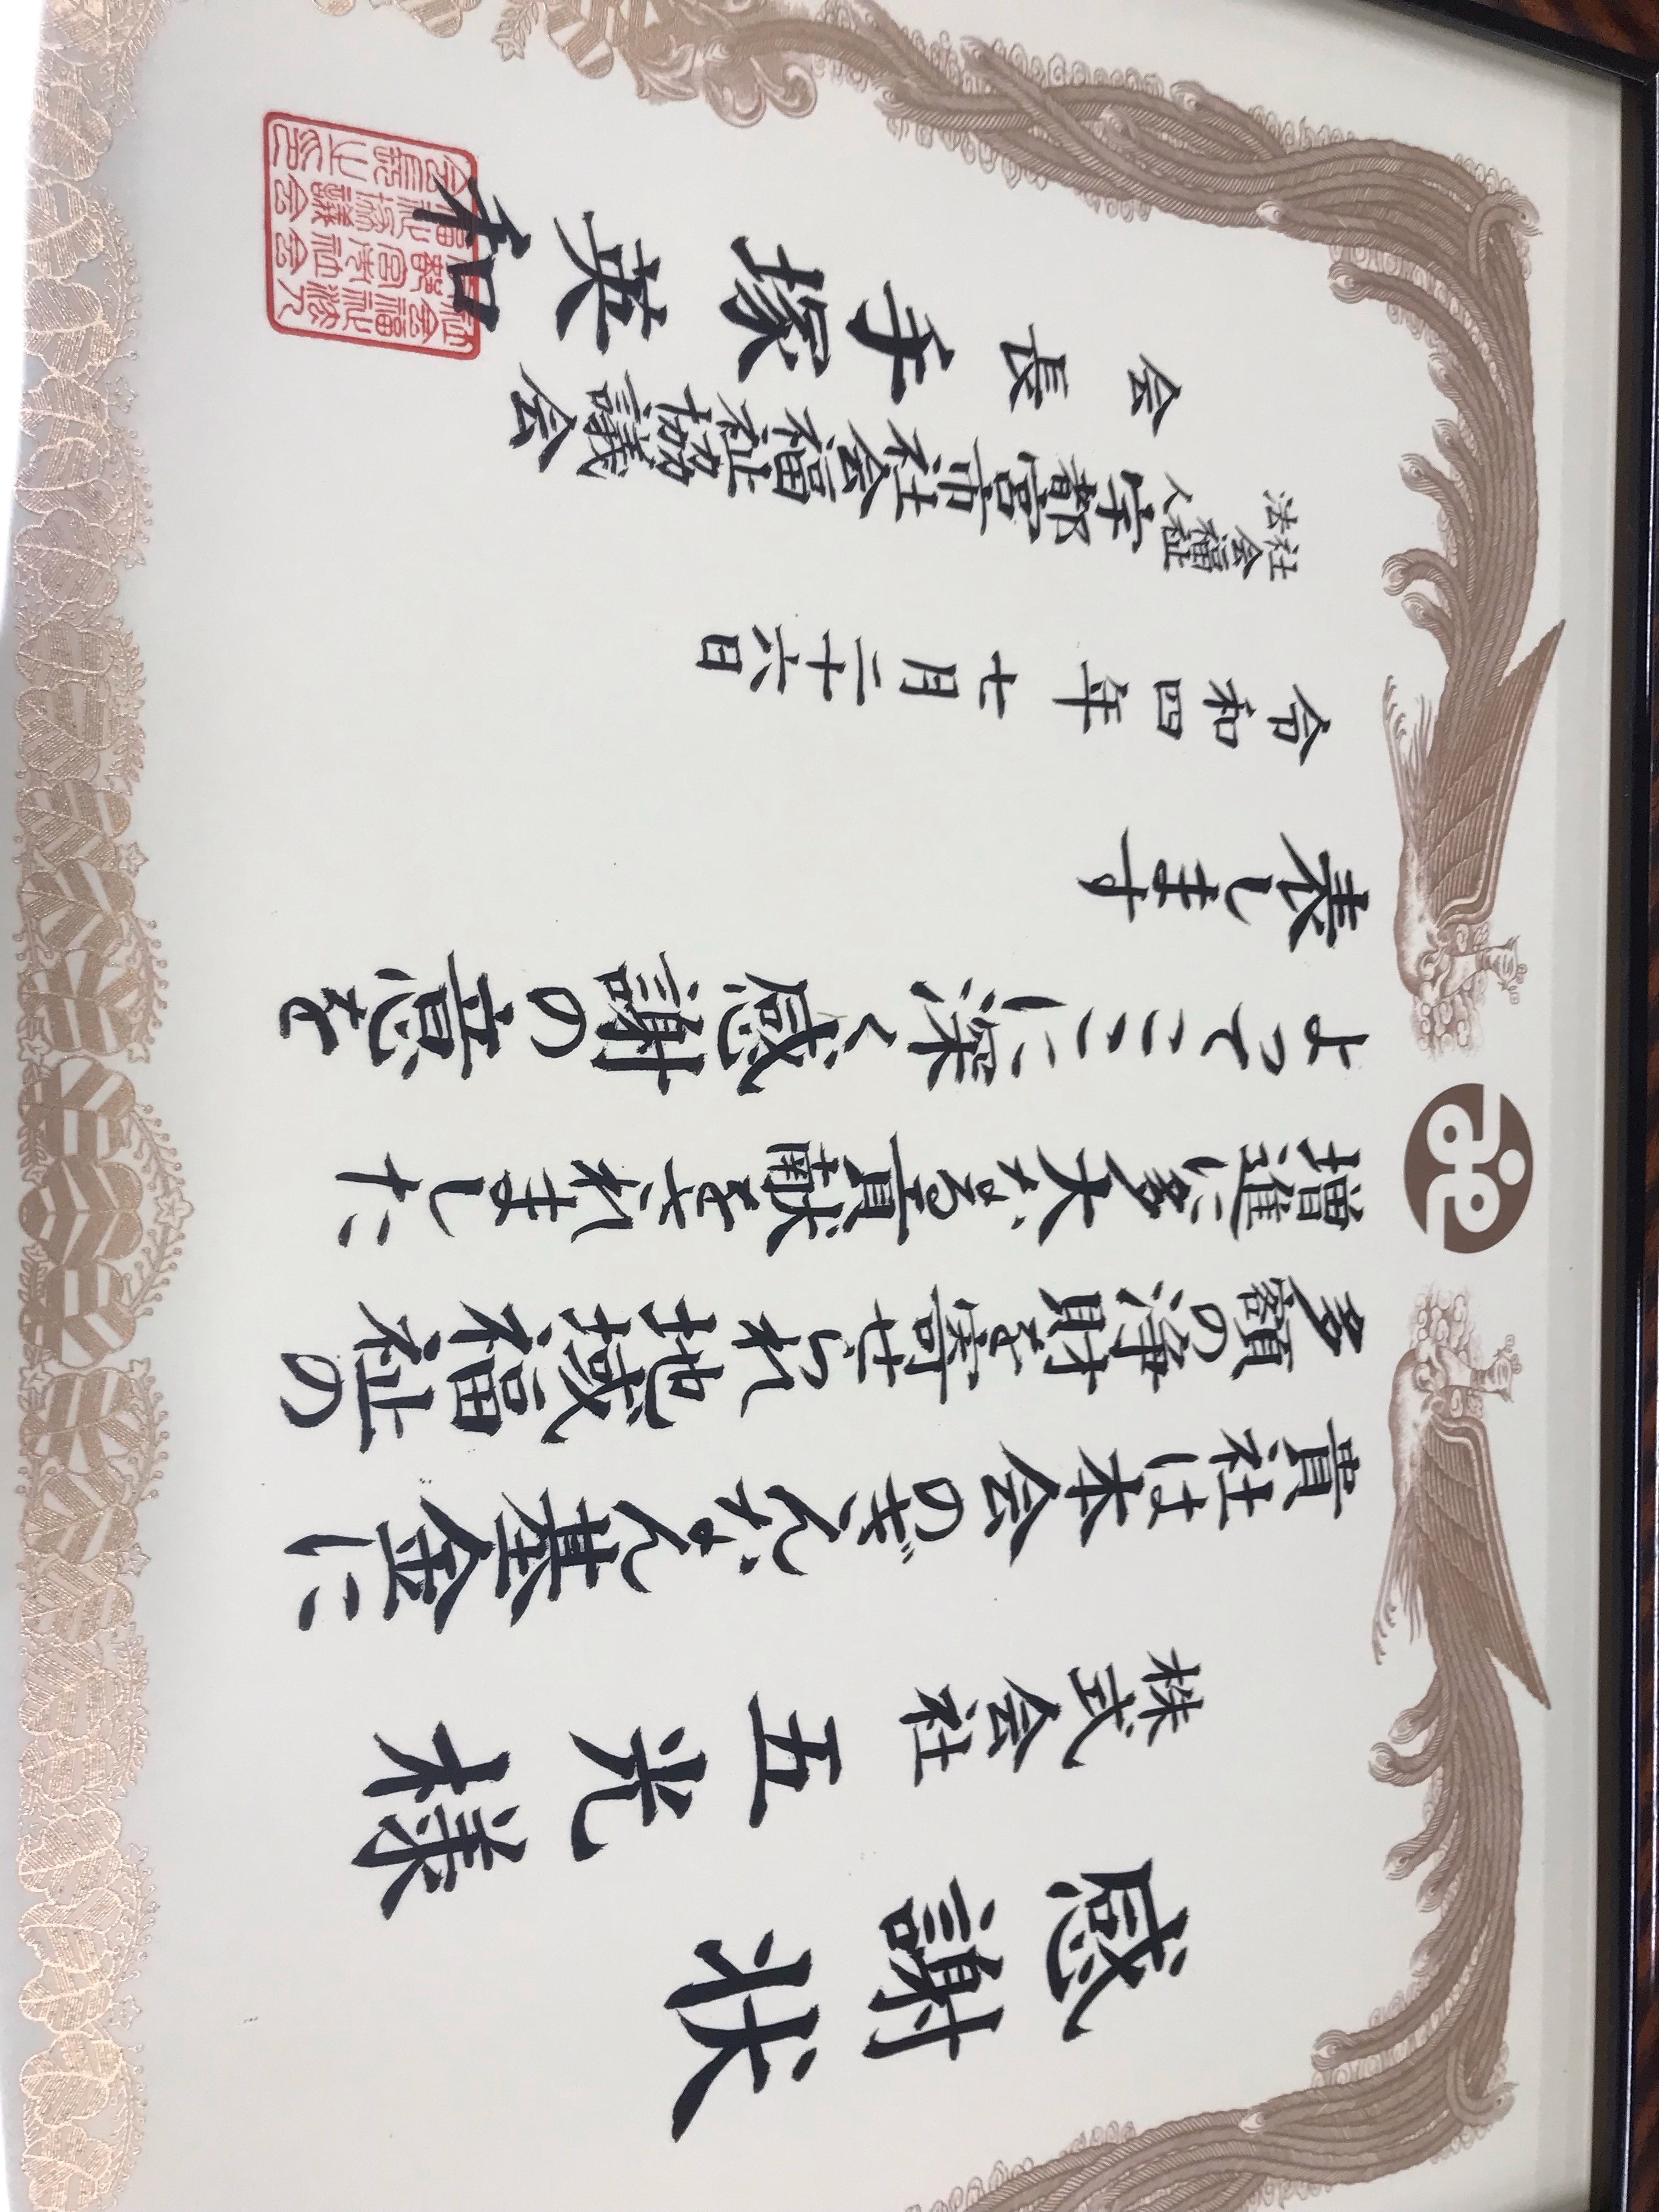 感謝状
株式会社 五光 様
貴社は本会のぎんなん基金に
多額の浄財を寄せられ地域福祉の
増進に多大なる貢献をされました
よってここに深く感謝の意を
表します
令和四年七月二十六日
社会福祉法人 宇都宮市社会福祉協議会
会長 手塚英和
社会福祉法人
宇都宮市社会
福祉協議会
会長之印